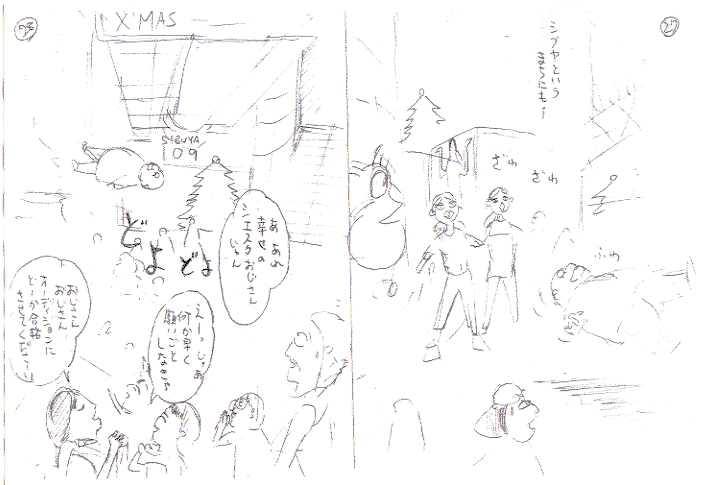 27
シブヤという
まちにも〜
ざわ
ざわ
ふわ
X'MAS
SIBUYA
109
あ あれ
幸せの
シエスタおじさん
じゃん
どよどよ
えーっじゃあ
何か早く
願いごと
しなきゃ
おじさん
おじさん
オーディションに
どーか合格
させてください